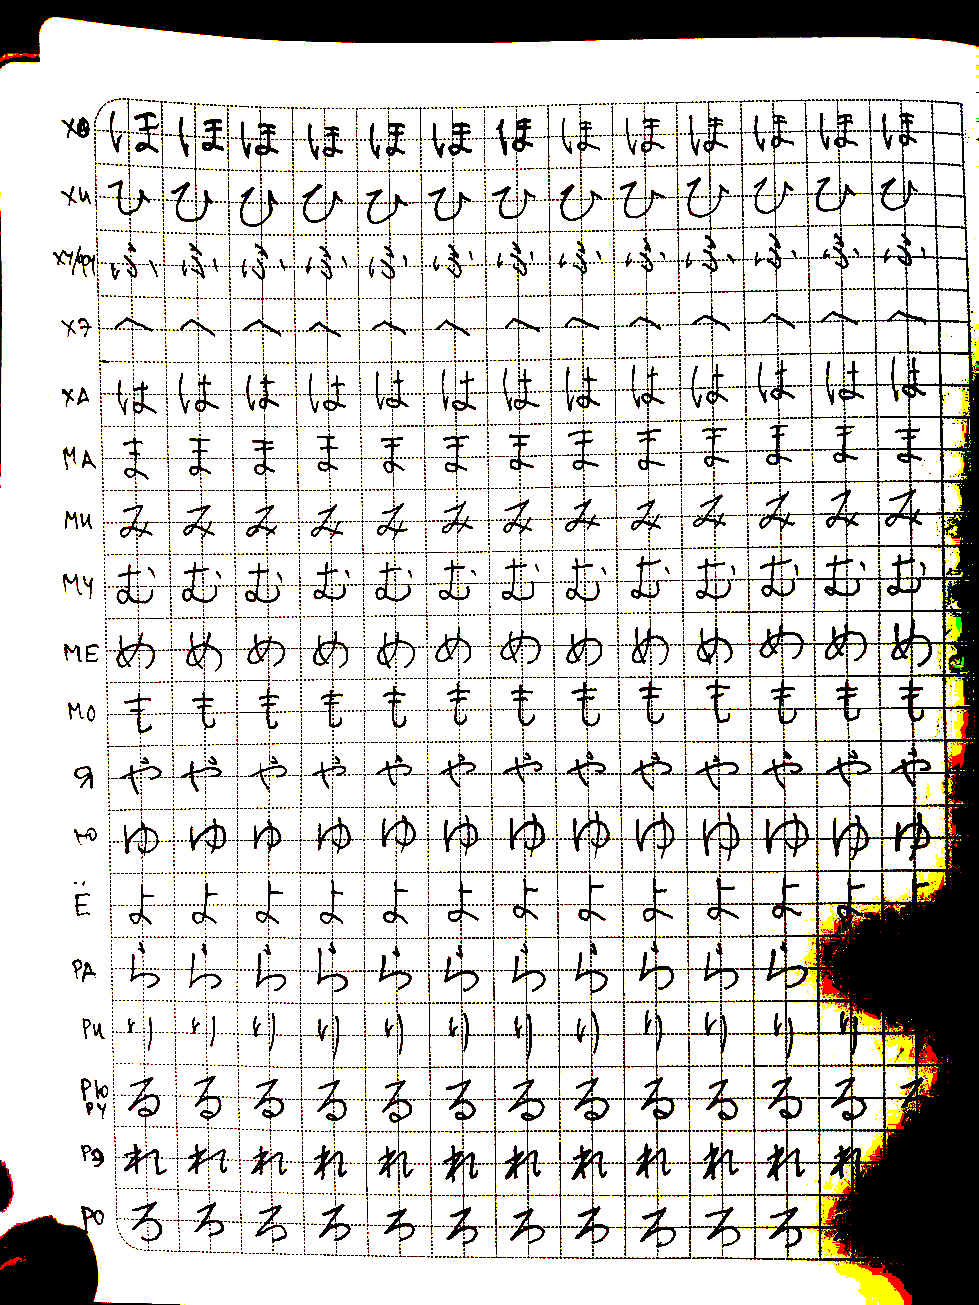 ХО ほ ほ ほ ほ ほ ほ ほ ほ ほ ほ ほ ほ ほ
ХИ ひ ひ ひ ひ ひ ひ ひ ひ ひ ひ ひ ひ ひ
ХУ/ФУ ふ ふ ふ ふ ふ ふ ふ ふ ふ ふ ふ ふ ふ
ХЭ へ へ へ へ へ へ へ へ へ へ へ へ へ
ХА は は は は は は は は は は は は は
МА ま ま ま ま ま ま ま ま ま ま ま ま ま
МИ み み み み み み み み み み み み み
МУ む む む む む む む む む む む む む
МЕ め め め め め め め め め め め め め
МО も も も も も も も も も も も も も
Я や や や や や や や や や や や や や
Ю ゆ ゆ ゆ ゆ ゆ ゆ ゆ ゆ ゆ ゆ ゆ ゆ ゆ
Ё よ よ よ よ よ よ よ よ よ よ よ よ
РА ら ら ら ら ら ら ら ら ら ら ら
РИ り り り り り り り り り り り り
РЮ РУ る る る る る る る る る る る る
РЭ れ れ れ れ れ れ れ れ れ れ れ れ
РО ろ ろ ろ ろ ろ ろ ろ ろ ろ ろ ろ